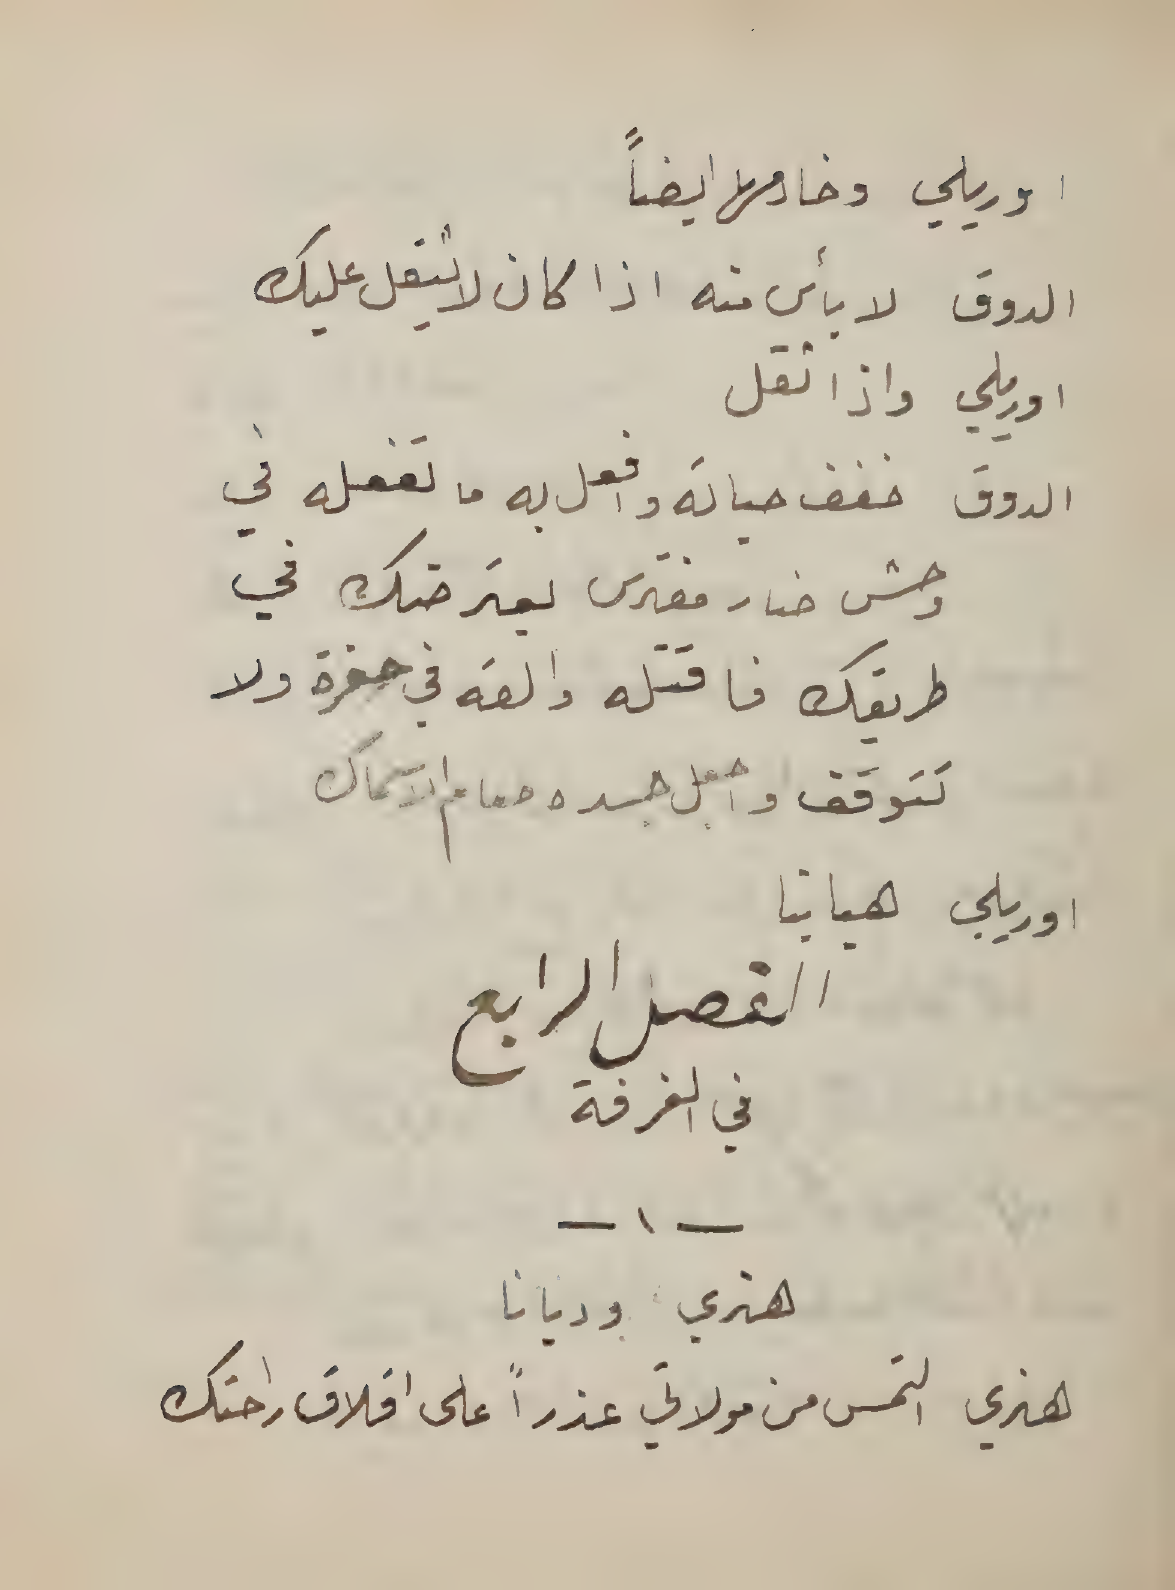 اوريلي وخادمها ايضاً
الدوق لا بأس منه اذا كان لا يثقل عليك
اوريلي واذا ثقل
الدوق خفف حياته وافعل به ما تفعله في
وحش ضار مفترس يعترضك في
طريقك فاقتله والقه في حفرة ولا
تتوقف واجعل جسده طعام الاسماك
اوريلي هيا بنا
الفصل الرابع
في الغرفة
— ١ —
هنري وديانا
هنري التمس من مولاتي عذراً على اقلاق راحتك